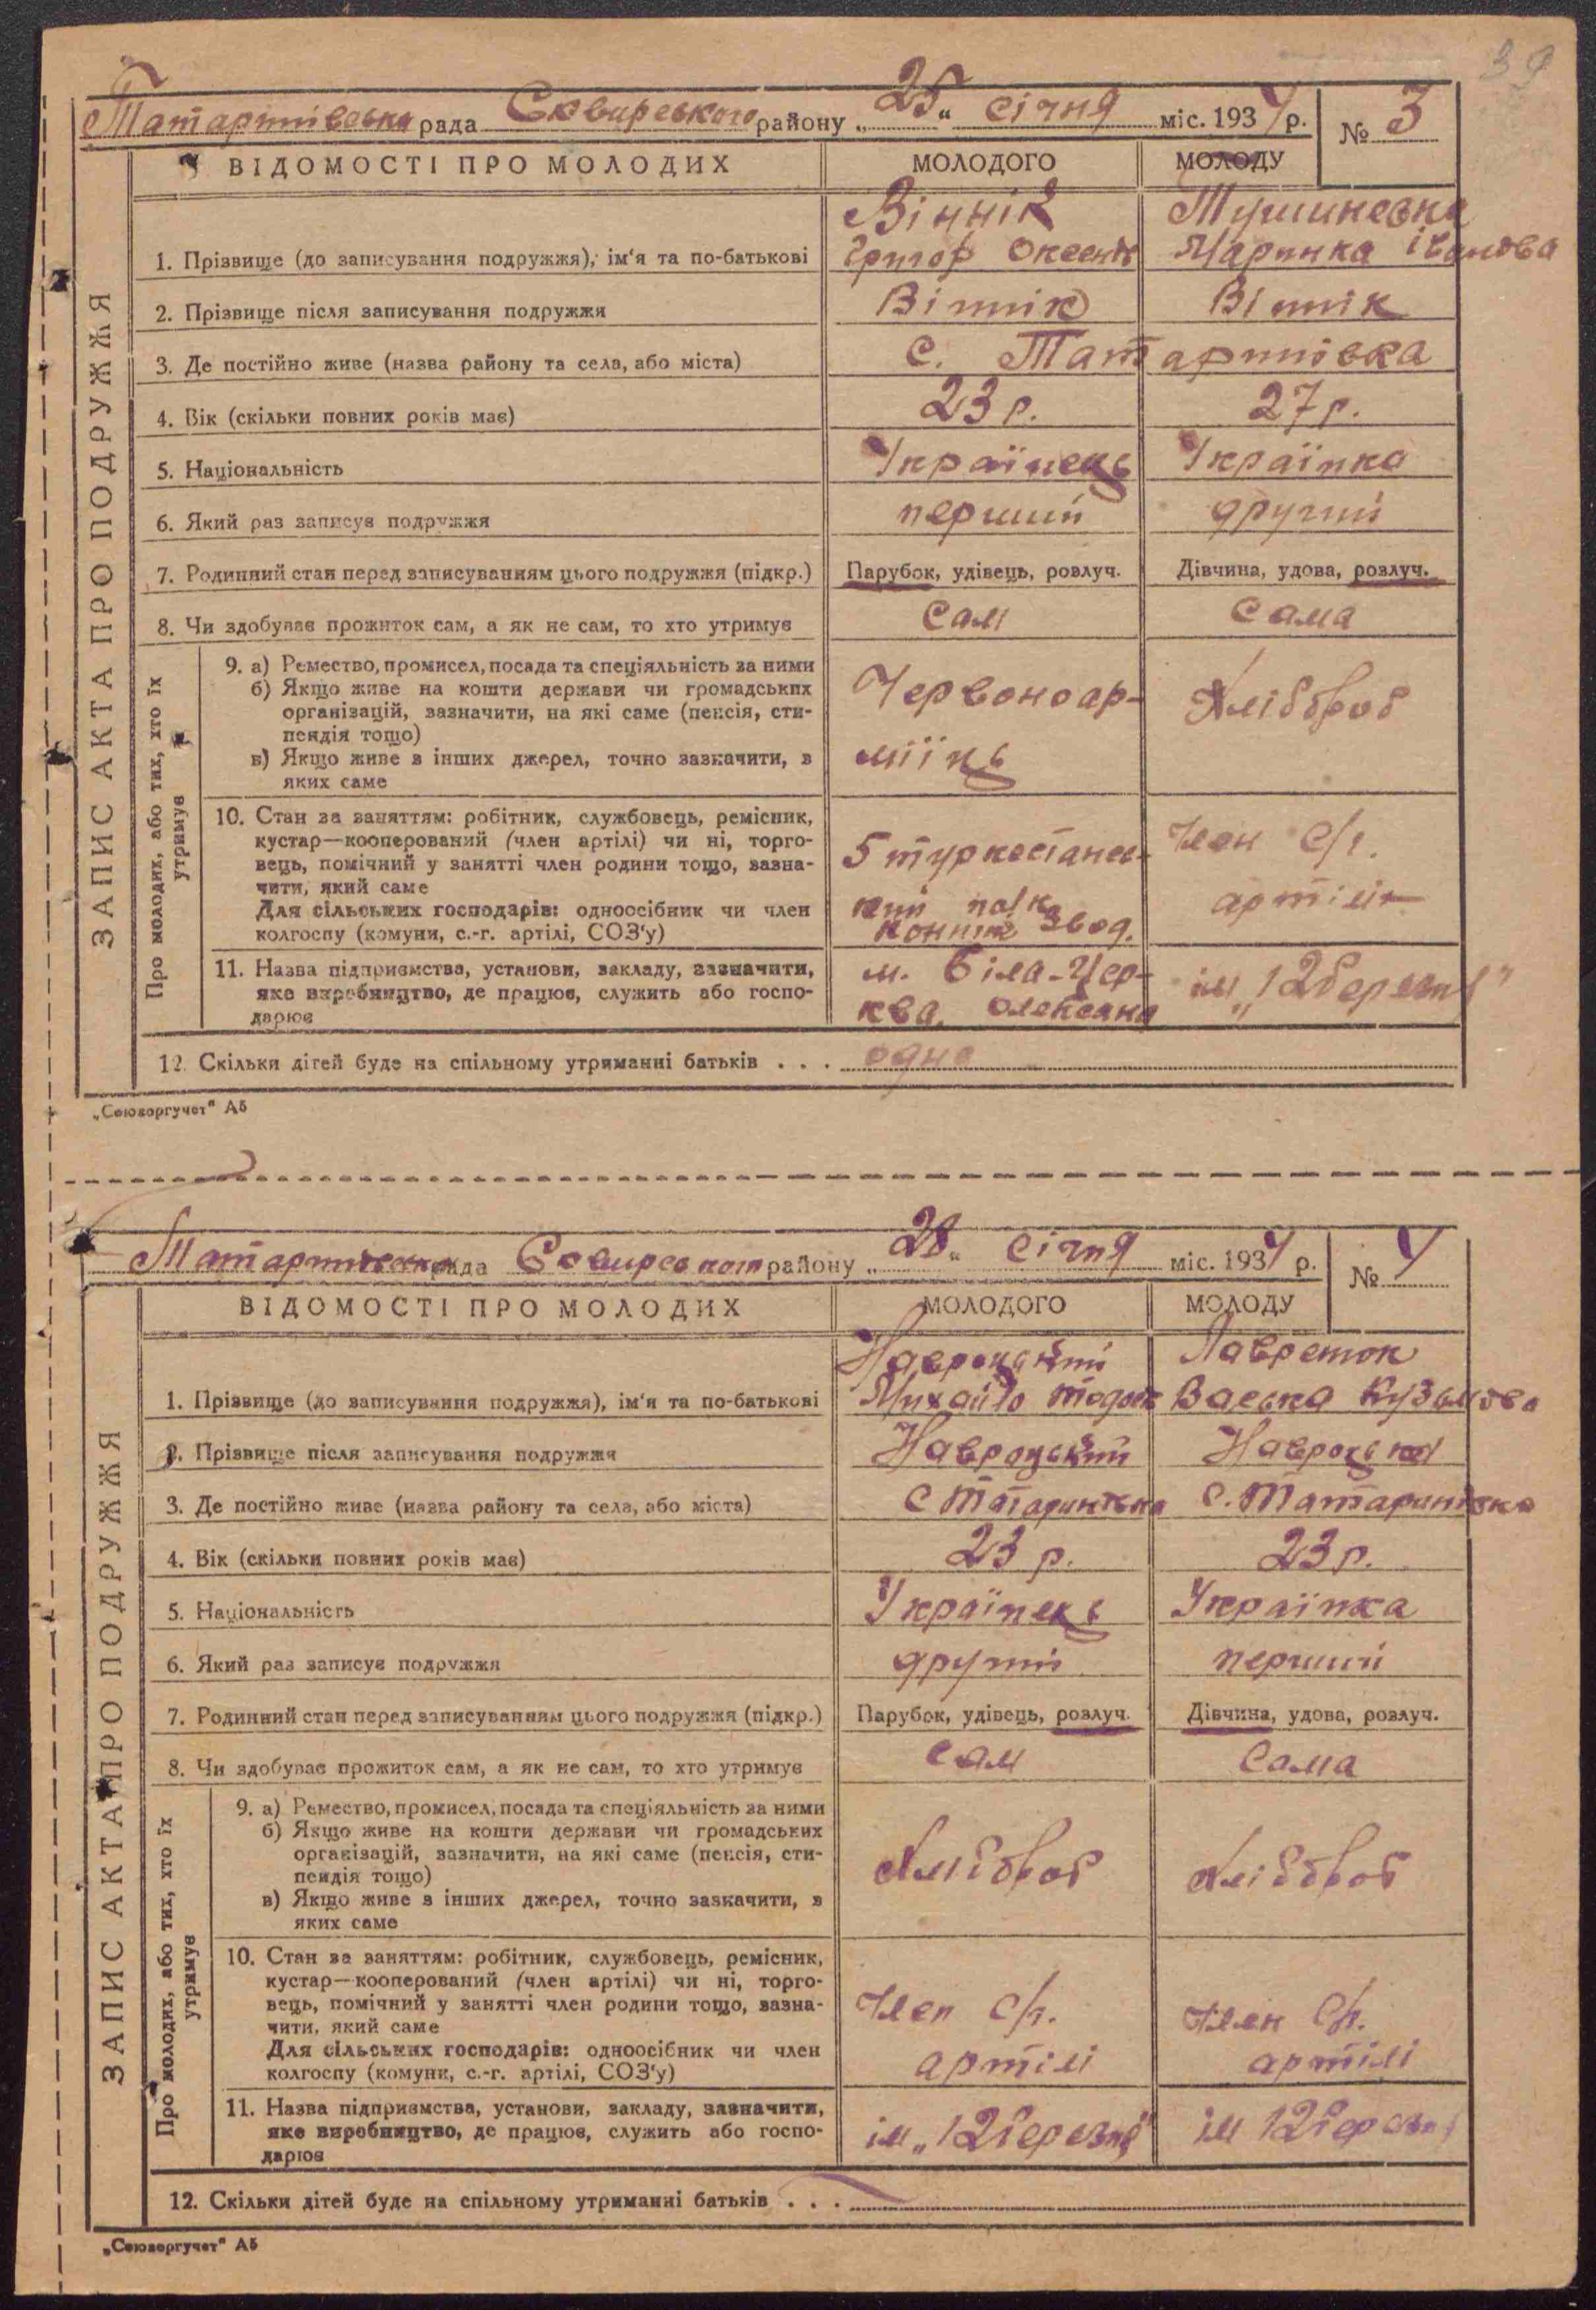 39
Татаринівська рада Сквирського району „25“ січня міс. 1934 р. № 3
ВІДОМОСТІ ПРО МОЛОДИХ МОЛОДОГО МОЛОДУ
ЗАПИС АКТА ПРО ПОДРУЖЖЯ
Віннік
1. Прізвище (до записування подружжя), ім'я та по-батькові Григор Оксент Маринка Іванова
2. Прізвище після записування подружжя Віннік Віннік
3. Де постійно живе (назва району та села, або міста) с. Татаринівка
4. Вік (скільки повних років має) 23 р. 27 р.
5. Національність Українець Українка
6. Який раз записує подружжя перший другий
7. Родинний стан перед записуванням цього подружжя (підкр.) Парубок, удівець, розлуч. Дівчина, удова, розлуч.
8. Чи здобуває прожиток сам, а як не сам, то хто утримує Сам Сама
Про молодих, або тих, хто їх утримує
9. а) Ремество, промисел, посада та спеціяльність за ними
б) Якщо живе на кошти держави чи громадських Червоноар-
організацій, зазначити, на які саме (пенсія, сти- Хлібороб
пендія тощо)
в) Якщо живе з інших джерел, точно зазначити, з міїць
яких саме
10. Стан за заняттям: робітник, службовець, ремісник,
кустар—кооперований (член артілі) чи ні, торго- Член с/г.
вець, помічний у занятті член родини тощо, зазна- 5 туркестансь-
чити, який саме
Для сільських господарів: одноосібник чи член кий полк артілі
колгоспу (комуни, с.-г. артілі, СОЗ'у) звод.
11. Назва підприємства, установи, закладу, зазначити, м. Біла-Цер-
яке виробництво, де працює, служить або госпо- ім „12 березня“
дарює ква.
12. Скільки дітей буде на спільному утриманні батьків . . . одно
„Союзоргучет“ А5
Татаринівська рада Сквирського району „28“ січня міс. 1934 р. № 4
ВІДОМОСТІ ПРО МОЛОДИХ МОЛОДОГО МОЛОДУ
ЗАПИС АКТА ПРО ПОДРУЖЖЯ
Навроцький Лавренюк
1. Прізвище (до записування подружжя), ім'я та по-батькові Михайло Тодос Васька Кузьмова
2. Прізвище після записування подружжя Навроцький Навроцька
3. Де постійно живе (назва району та села, або міста) с Татаринівка с. Татаринівка
4. Вік (скільки повних років має) 23 р. 23 р.
5. Національність Українець Українка
6. Який раз записує подружжя другий перший
7. Родинний стан перед записуванням цього подружжя (підкр.) Парубок, удівець, розлуч. Дівчина, удова, розлуч.
8. Чи здобуває прожиток сам, а як не сам, то хто утримує сам Сама
Про молодих, або тих, хто їх утримує
9. а) Ремество, промисел, посада та спеціяльність за ними
б) Якщо живе на кошти держави чи громадських
організацій, зазначити, на які саме (пенсія, сти-
пендія тощо) Хлібороб Хлібороб
в) Якщо живе з інших джерел, точно зазначити, з
яких саме
10. Стан за заняттям: робітник, службовець, ремісник,
кустар—кооперований (член артілі) чи ні, торго-
вець, помічний у занятті член родини тощо, зазна- Член с/г. Член с/г.
чити, який саме
Для сільських господарів: одноосібник чи член артілі артілі
колгоспу (комуни, с.-г. артілі, СОЗ'у)
11. Назва підприємства, установи, закладу, зазначити,
яке виробництво, де працює, служить або госпо- ім „12 березня“ ім 12 березня
дарює
12. Скільки дітей буде на спільному утриманні батьків . . .
„Союзоргучет“ А5